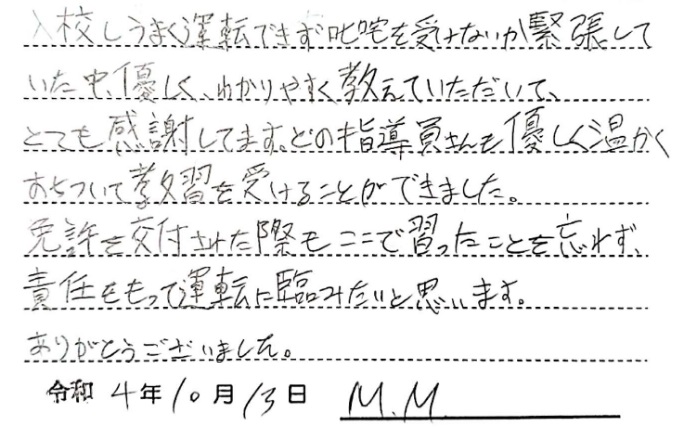 入校しうまく運転できず叱咤を受けないか緊張して
いた中、優しく、わかりやすく教えていただいて、
とても感謝してます。どの指導員さんも優しく温かく
おちついて教習を受けることができました。
免許を交付された際もここで習ったことを忘れず、
責任をもって運転に臨みたいと思います。
ありがとうございました。
令和 4年10月13日 M.M